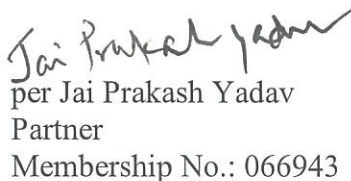 Jai Prakash Yadav
per Jai Prakash Yadav
Partner
Membership No.: 066943